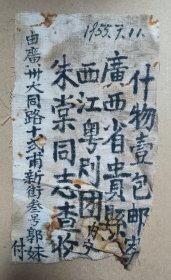 1955.7.11.
什物壹包邮寄
廣西省貴縣
西江粤剧团内交
朱棠同志查收
由廣州大同路十弍甫新街叁号郭妹
付